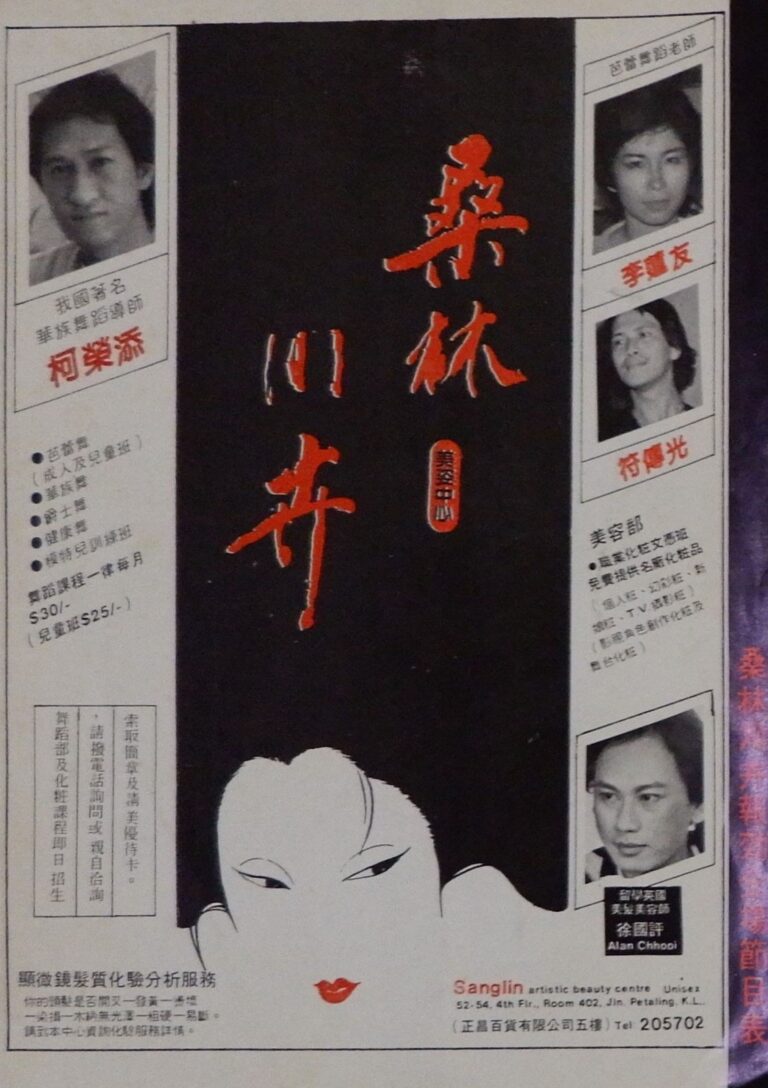 我國著名
華族舞蹈導師
柯榮添
●芭蕾舞
(成人及兒童班)
●華族舞
●爵士舞
●健康舞
●模特兒訓練班
舞蹈課程一律每月
S30/-
(兒童班S25/-)
索取簡章及清美優待卡。
，請撥電話詢問或親自洽詢
舞蹈部及化粧課程即日招生
桑林
川卉
美姿中心
芭蕾舞蹈老師
友
符傳光
美容部
●職業化粧文憑班
免費提供名廠化粧品
(個人粧、幻彩粧、新
娘粧、T.V.攝影粧)
(影視角色創作化粧及
舞台化粧)
留學英國
美髮美容師
徐國評
Alan Chhooi
顯微鏡髮質化驗分析服務
你的頭髮是否開叉一發黃一燙
一染損一木納無光澤一粗硬一易斷。
請到本中心資詢化驗服務詳情。
Sanglin artistic beauty centre Unisex
52-54, 4th Flr., Room 402, Jln. Petaling, K.L..
(正昌百貨有限公司五樓) Tel 205702
桑林
節目表